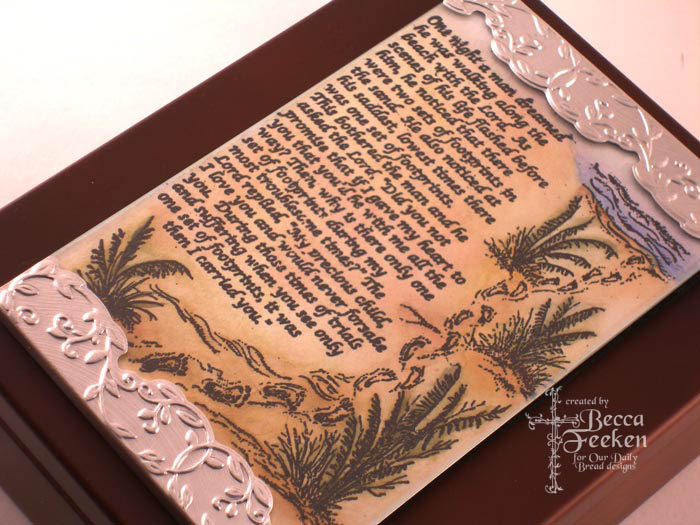 One night a man dreamed
he was walking along the
beach with the Lord. As
scenes of his life flashed before
him, he noticed that there
were two sets of footprints in
the sand. He also noticed at
his saddest, lowest times there
was one set of footprints.
This bothered the man and he
asked the Lord, "Did you not
promise that if I gave my heart to
you, that you'd be with me all the
way? Then, why is there only one
set of footprints during my
most troublesome times? The
Lord replied, "My precious child,
I love you and would never forsake
you. During those times of trials
and suffering when you see only
one set of footprints, it was
then I carried you."
created by
Becca
Feeken
for Our Daily
Bread designs